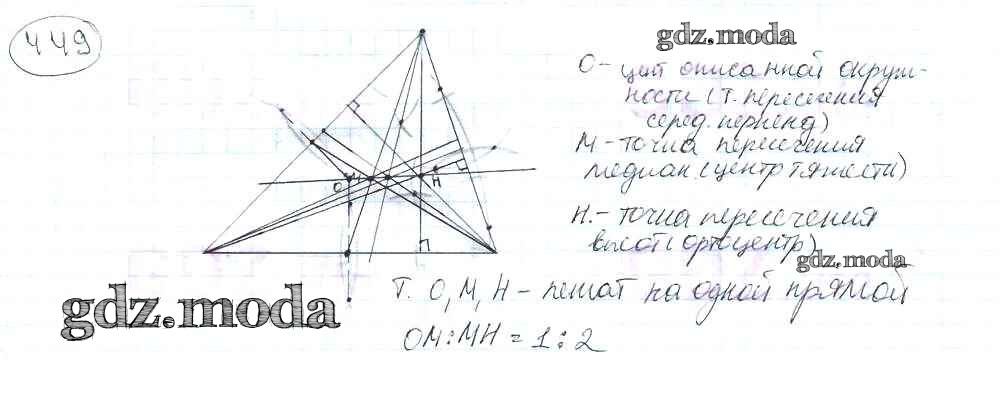 449
gdz.moda
О- цент описанной окруж-
ности (т. пересечения
серед. перпенд)
М - точка пересечения
медиан. (центр тяжести)
Н.- точка пересечения
высот (ортоцентр)
gdz.moda
О М Н
П
gdz.moda
Т. О, М, Н - лежат на одной прямой
ОМ:МН = 1:2